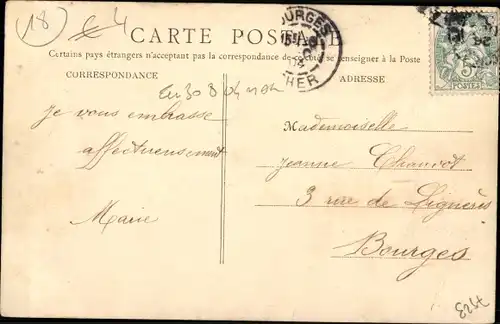 18
4
CARTE POSTALE
BOURGES
CHER
5
POSTES
Certains pays étrangers n'acceptant pas la correspondance de ce côté se renseigner à la Poste
CORRESPONDANCE
ADRESSE
je vous embrasse
affectueusement
Marie
Mademoiselle
Jeanne Chauvot
3 rue de Lignières
Bourges